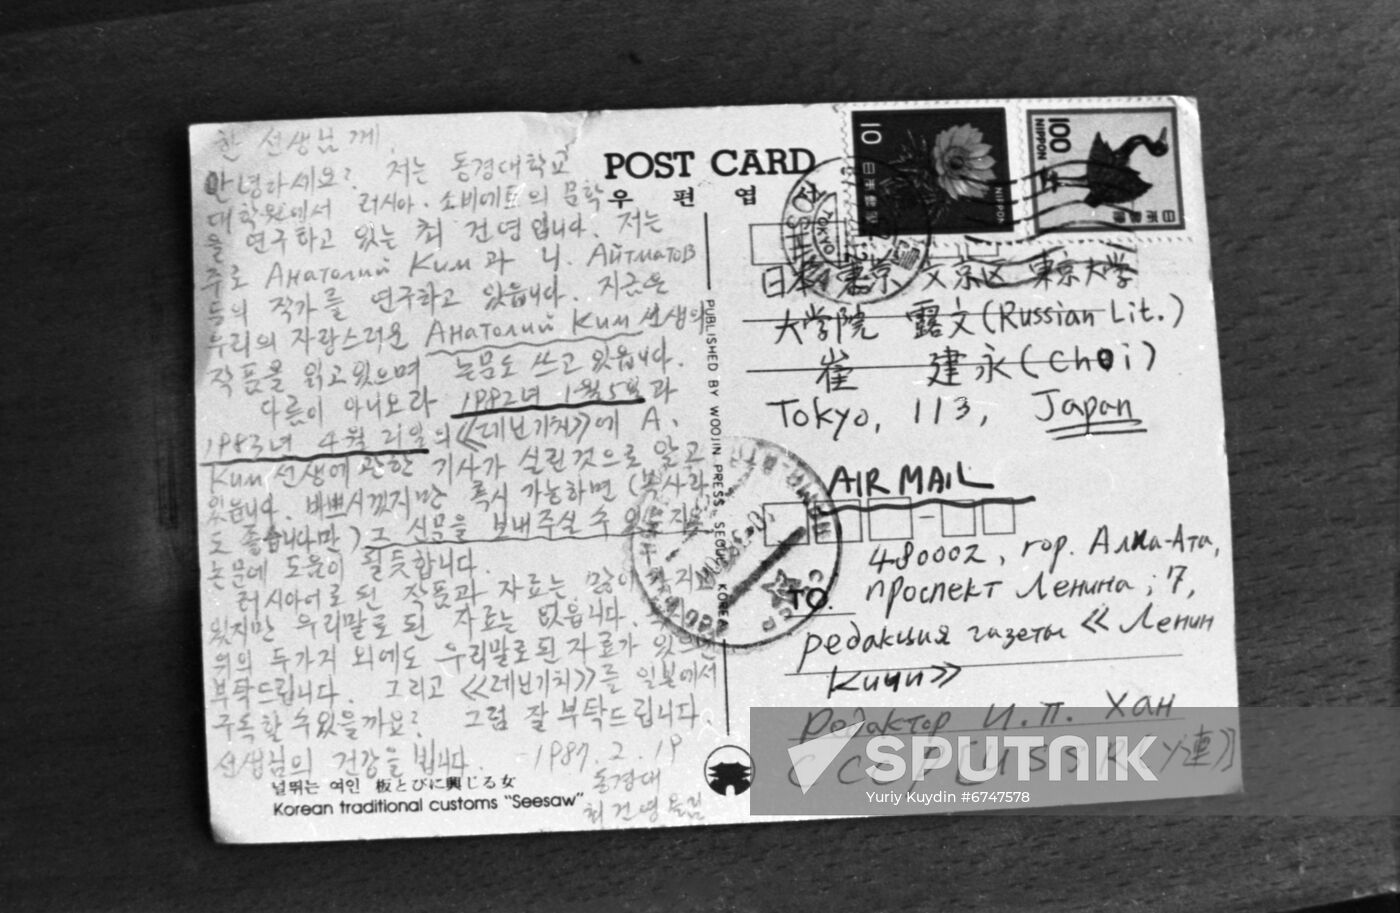 한 선생님께,
안녕하세요? 저는 동경대학교
대학원에서 러시아·소비에트의 문학
을 연구하고 있는 최 건영입니다. 저는
주로 Анатолий Ким과 Ч. Айтматов
등의 작가를 연구하고 있습니다. 지금은
우리의 자랑스러운 Анатолий Ким 선생의
작품을 읽고있으며 논문도 쓰고 있읍니다.
다름이 아니오라 1982년 1월 5일과
1983년 4월 21일의 《레닌기치》에 А.
Ким 선생에 관한 기사가 실린것으로 알고
있읍니다. 바쁘시겠지만 혹시 가능하면 (복사라
도 좋습니다만) 그 신문을 보내주실 수 있을지요
논문에 도움이 될듯합니다.
러시아어로 된 작품과 자료는 많이 가지고
있지만 우리말로 된 자료는 없읍니다.
위의 두가지 외에도 우리말로된 자료가 있으면
부탁드립니다. 그리고 《레닌기치》를 일본에서
구독할 수 있을까요? 그럼 잘 부탁드립니다.
선생님의 건강을 빕니다. 1987. 2. 19
동경대
최 건영 올림
널뛰는 여인 板とびに興じる女
Korean traditional customs "Seesaw"
POST CARD
우 편 엽 서
PUBLISHED BY WOOJIN PRESS, SEOUL, KOREA
10 日本郵便 NIPPON
100 NIPPON 日本郵便
TOSHIMA
TOKYO
日本 東京 文京区 東京大学
大学院 露文(Russian Lit.)
崔 建永(Choi)
Tokyo, 113, Japan
AIR MAIL
480002, гор. Алма-Ата,
TO. проспект Ленина, 7,
редакция газеты «Ленин
Кичи»
редактор И. П. Хан
СССР (USSR ソ連)
SPUTNIK
Yuriy Kuydin #6747578